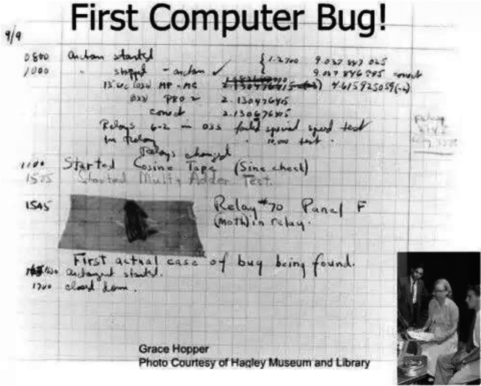 First Computer Bug!
9/9
0800 Antan started
1000 " stopped - antan ✓ { 1.2700 9.037 847 025
9.037 846 995 correct
13"uc (032) MP-MC 2.130476415 4.615925059(-2)
033 PRO 2 2.130476415
correct 2.130676415
Relays 6-2 in 033 failed special speed test
in Relay " 10.000 test.
Relays changed
1100 Started Cosine Tape (Sine check)
1525 Started Multi Adder Test.
1545 Relay #70 Panel F
(moth) in relay.
First actual case of bug being found.
antangent started.
1700 closed down.
Grace Hopper
Photo Courtesy of Hagley Museum and Library